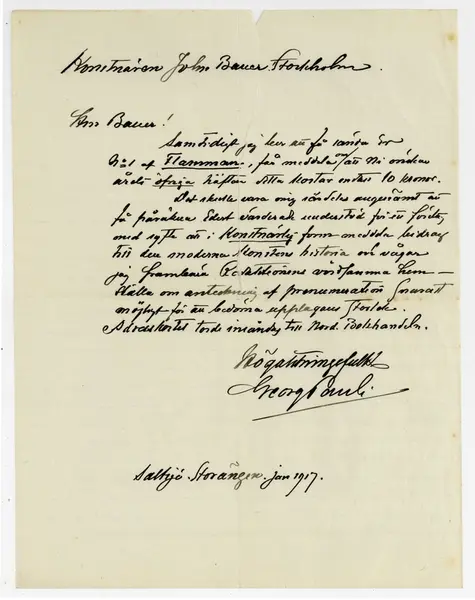 Konstnären John Bauer Stockholm.
Herr Bauer!
Samtidigt jag ber att få sända Er
håft af Flamman, får meddela att Ni önskar
årets öfriga häften detta kostar endast 10 kronor.
Det skulle vara mig särdeles angenämt att
få påräkna Edert värderade understöd för
med syfte att i Konstnärlig form meddela bidrag
till den moderna Konstens historia och vågar
jag frambära Redaktionens vördsamma hem-
ställa om anteckning af prenumeration snarast
möjligt för att bedöma upplagans storlek.
Adresskortet torde insändas till Nord. Bokhandeln.
Högaktningsfullt
Georg Pauli
Saltsjö. Storängen. jan 1917.